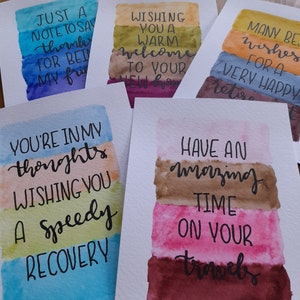 JUST A
NOTE TO SAY
thanks
FOR BEING
MY friend
WISHING
YOU A
WARM
welcome
TO YOUR
NEW home
MANY BEST
wishes
FOR A
VERY HAPPY
retirement
YOU'RE IN MY
thoughts
WISHING YOU
A speedy
RECOVERY
HAVE AN
amazing
TIME
ON YOUR
travels